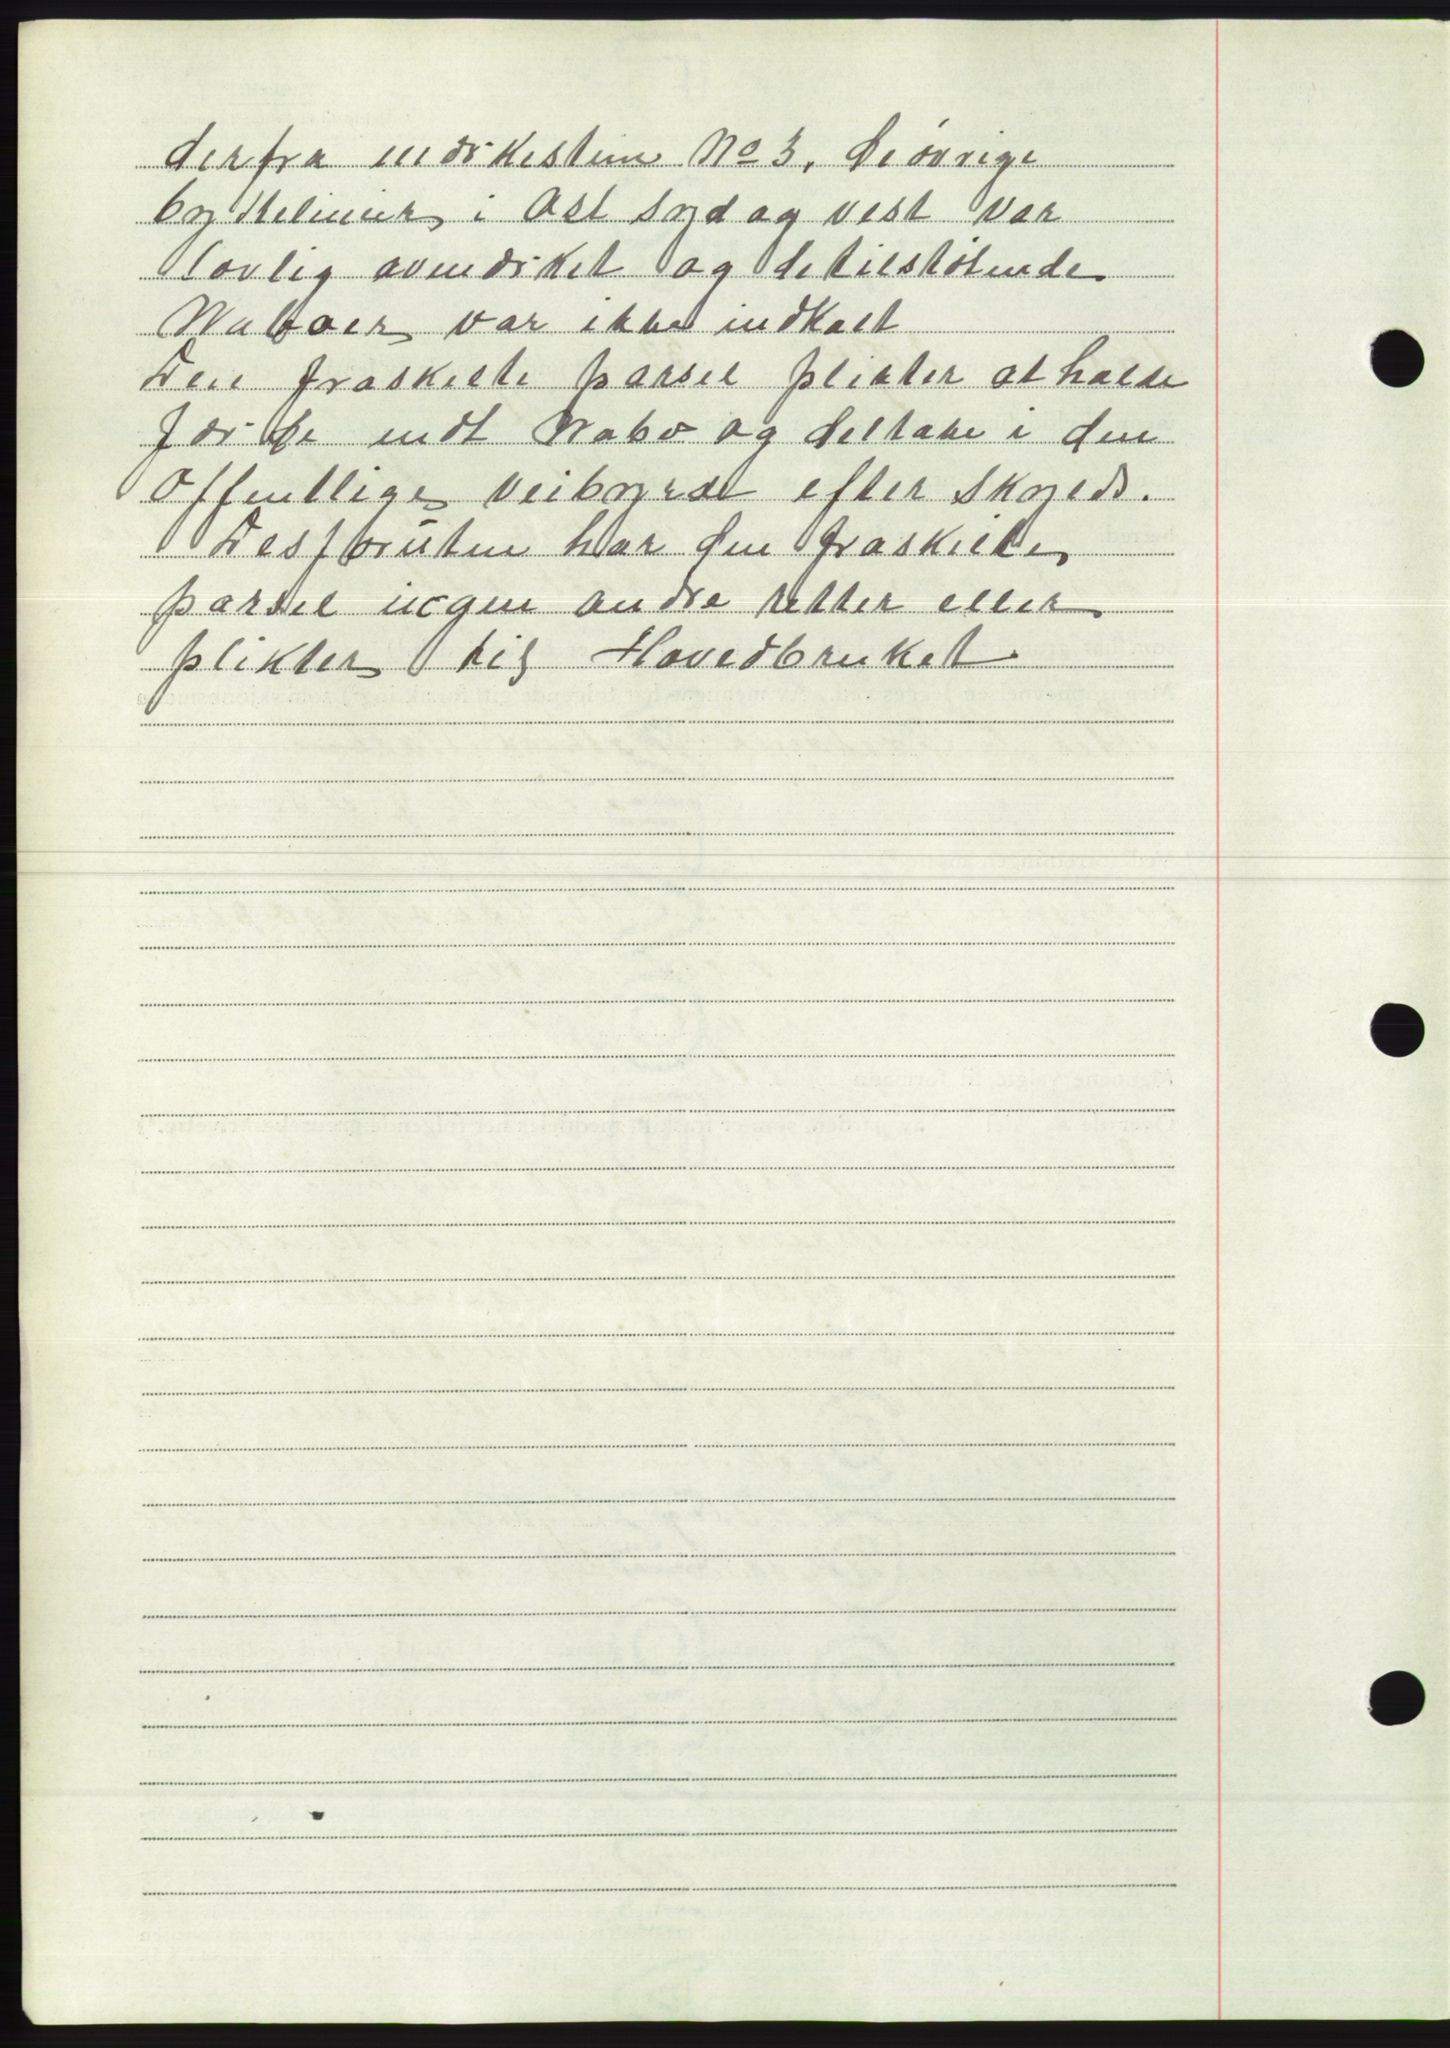 derfra merkesten No 3. De øvrige
byttelinier i Øst syd og vest var
lovlig avmerket og de tilstøtende
Naboer var ikke indkalt
Den fraskilte parsel plikter at holde
gjerde mot Nabo og deltake i den
offentlige veibyrde efter skyld.
Desforuten har den fraskilte
parsel ingen andre retter eller
plikter til Hovedbruket